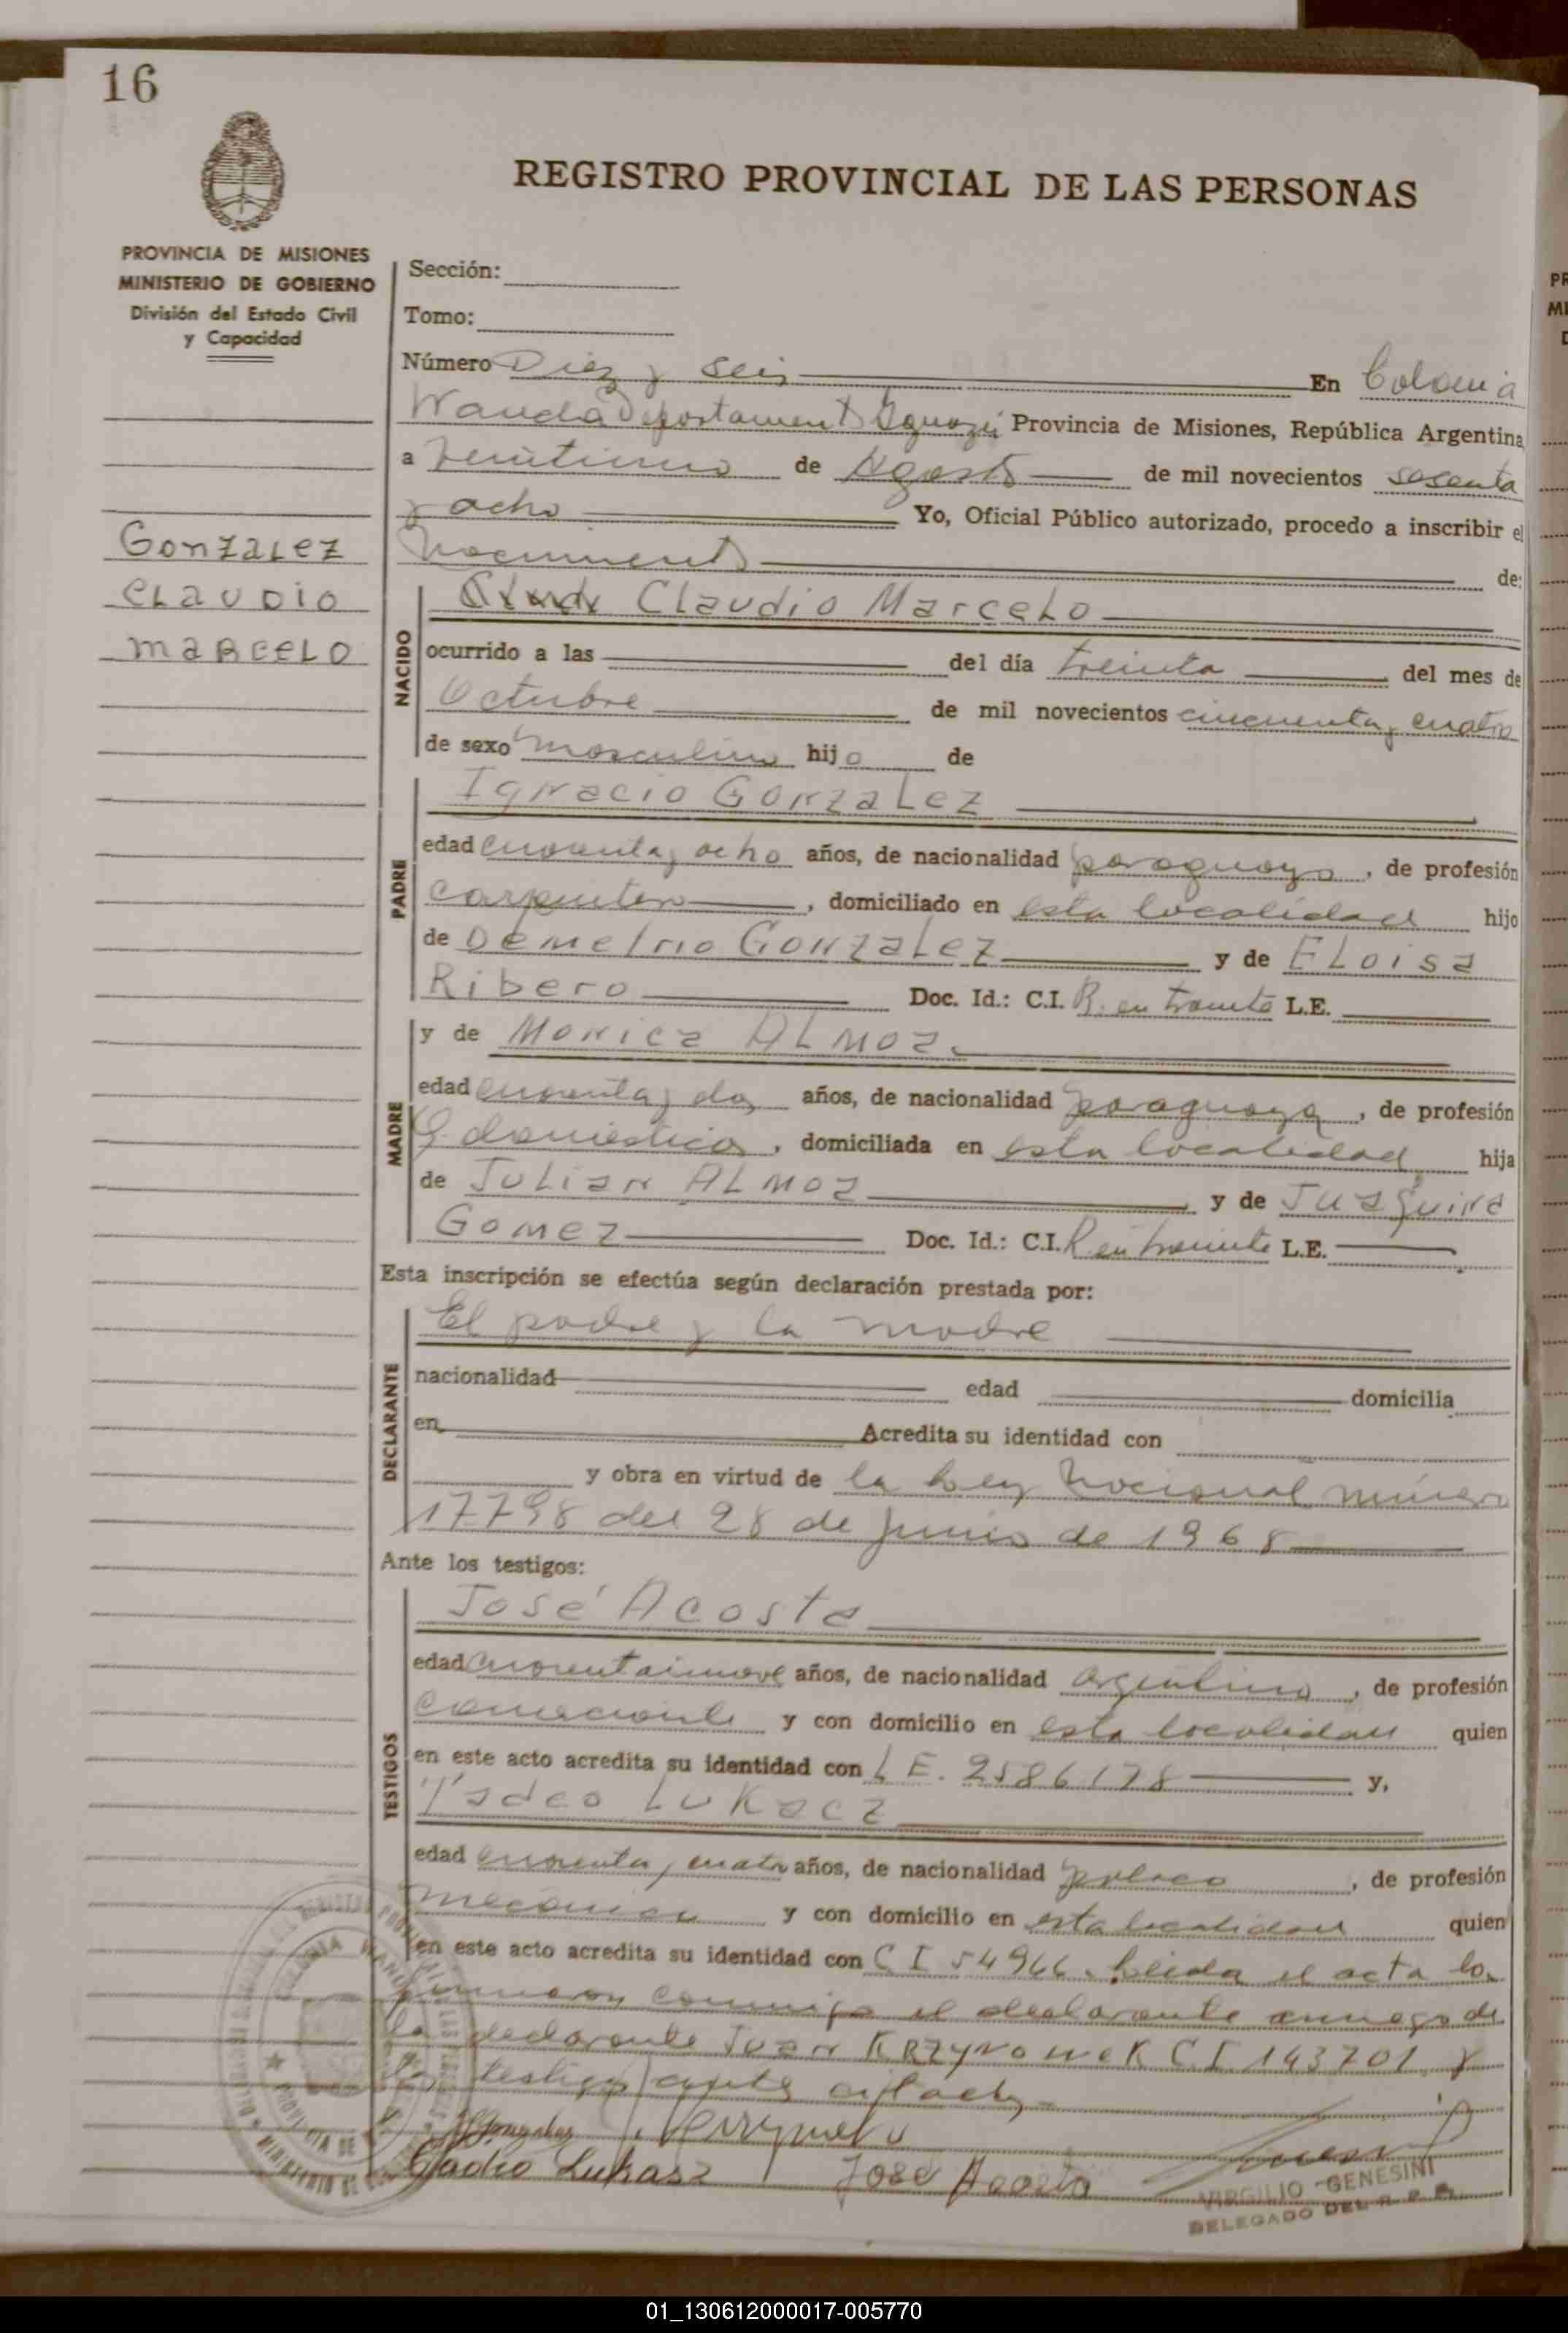 16
REGISTRO PROVINCIAL DE LAS PERSONAS
PROVINCIA DE MISIONES
MINISTERIO DE GOBIERNO
División del Estado Civil
y Capacidad
Gonzalez
Claudio
Marcelo
Sección:
Tomo:
Número Diez y seis En Colonia
Wanda Departamento Iguazú Provincia de Misiones, República Argentina
a veintiuno de Agosto de mil novecientos sesenta
y ocho Yo, Oficial Público autorizado, procedo a inscribir el
Nacimiento de:
NACIDO
Claudio Marcelo
ocurrido a las del día treinta del mes de
Octubre de mil novecientos cincuenta y cuatro
de sexo masculino hijo de
PADRE
Ignacio Gonzalez
edad cuarenta y ocho años, de nacionalidad paraguaya, de profesión
carpintero, domiciliado en esta localidad hijo
de Demetrio Gonzalez y de Eloisa
Ribero Doc. Id.: C.I. R. en tramite L.E.
MADRE
y de Monica Almoa
edad cuarenta y dos años, de nacionalidad paraguaya, de profesión
Q. domesticos, domiciliada en esta localidad hija
de Julian Almoa y de
Gomez Doc. Id.: C.I. R en tramite L.E.
Esta inscripción se efectúa según declaración prestada por:
DECLARANTE
El padre y la madre
nacionalidad edad domicilia
en Acredita su identidad con
y obra en virtud de la Ley Nacional número
17798 del 28 de junio de 1968
Ante los testigos:
TESTIGOS
José Acosta
edad cuarentainueve años, de nacionalidad argentino, de profesión
comerciante y con domicilio en esta localidad quien
en este acto acredita su identidad con L E. 2586178 y,
Tadeo Lukacz
edad cuarenta y cuatro años, de nacionalidad polaco, de profesión
mecanico y con domicilio en esta localidad quien
en este acto acredita su identidad con C I 54966. Leida el acta la
firmaron conmigo el declarante a ruego de
la declarante Juan Krzyvowek C.I 143701 y
los testigos ante citados
Tadeo Lukasz José Acosta
VIRGILIO GENESINI
DELEGADO DEL R. P. P.
01_130612000017-005770